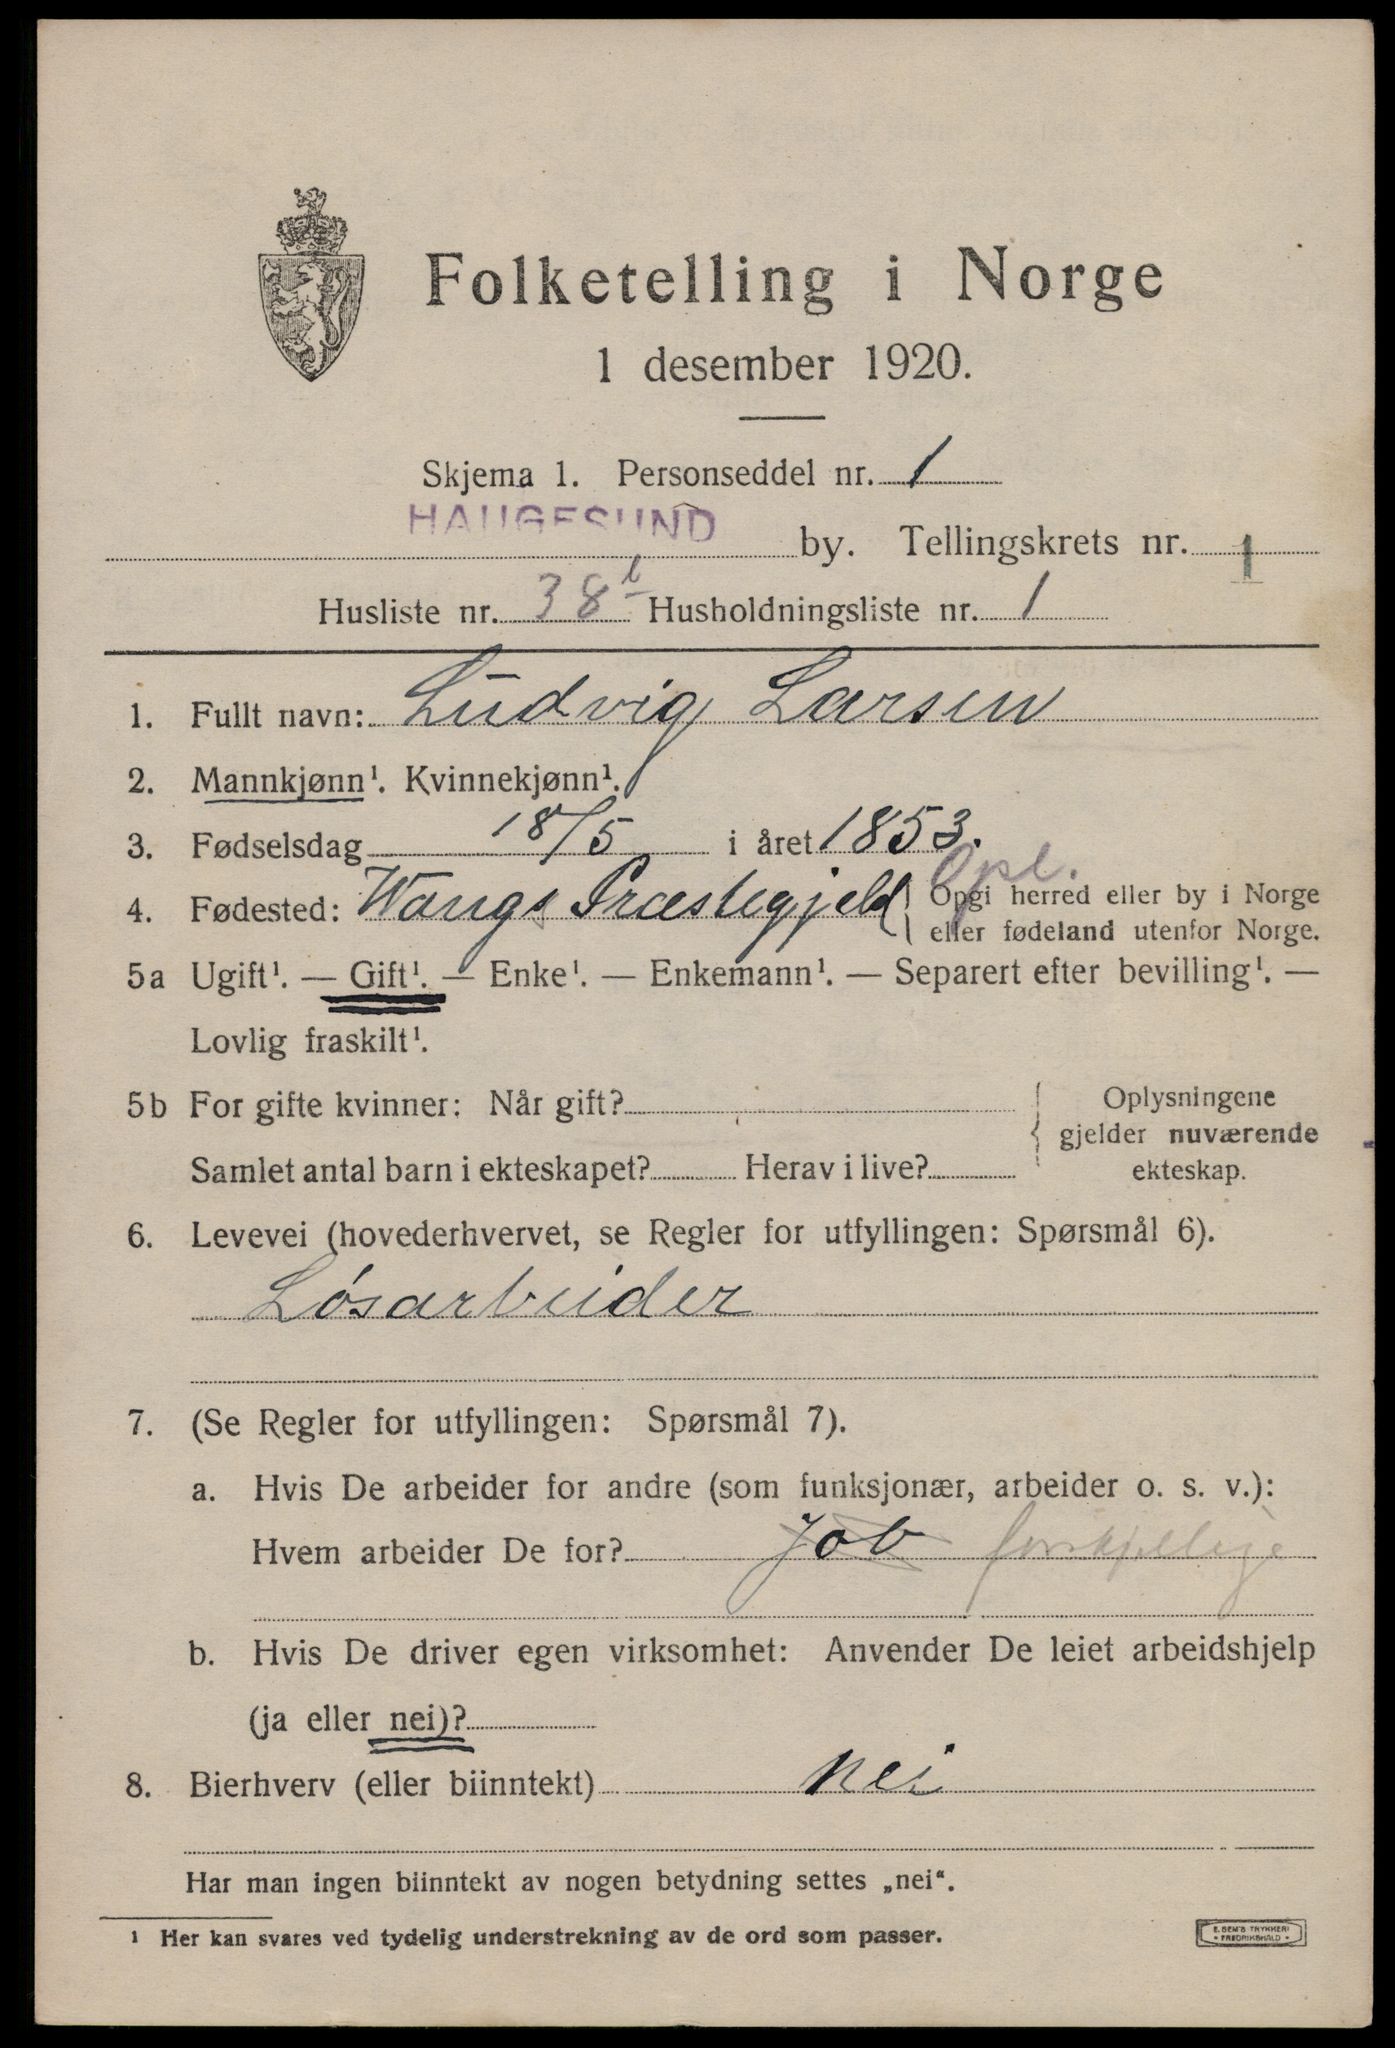 Folketelling i Norge
1 desember 1920.
Skjema 1. Personseddel nr. 1
HAUGESUND by. Tellingskrets nr. 1
Husliste nr. 38 Husholdningsliste nr. 1
1. Fullt navn: Ludvig Larsen
2. Mannkjønn¹. Kvinnekjønn¹.
3. Fødselsdag 18/5 i året 1853.
Opl.
4. Fødested: Wangs Præstegjeld { Opgi herred eller by i Norge
eller fødeland utenfor Norge.
5a Ugift¹. — Gift¹. — Enke¹. — Enkemann¹. — Separert efter bevilling¹. —
Lovlig fraskilt¹.
5b For gifte kvinner: Når gift? { Oplysningene
gjelder nuværende
Samlet antal barn i ekteskapet? Herav i live? ekteskap.
6. Levevei (hovederhvervet, se Regler for utfyllingen: Spørsmål 6).
Løsarbeider
7. (Se Regler for utfyllingen: Spørsmål 7).
a. Hvis De arbeider for andre (som funksjonær, arbeider o. s. v.):
Hvem arbeider De for? Job forskjellige
b. Hvis De driver egen virksomhet: Anvender De leiet arbeidshjelp
(ja eller nei)?
8. Bierhverv (eller biinntekt) Nei
Har man ingen biinntekt av nogen betydning settes „nei“.
¹ Her kan svares ved tydelig understrekning av de ord som passer.
E. SEM'S TRYKKERI
• FREDRIKSHALD •